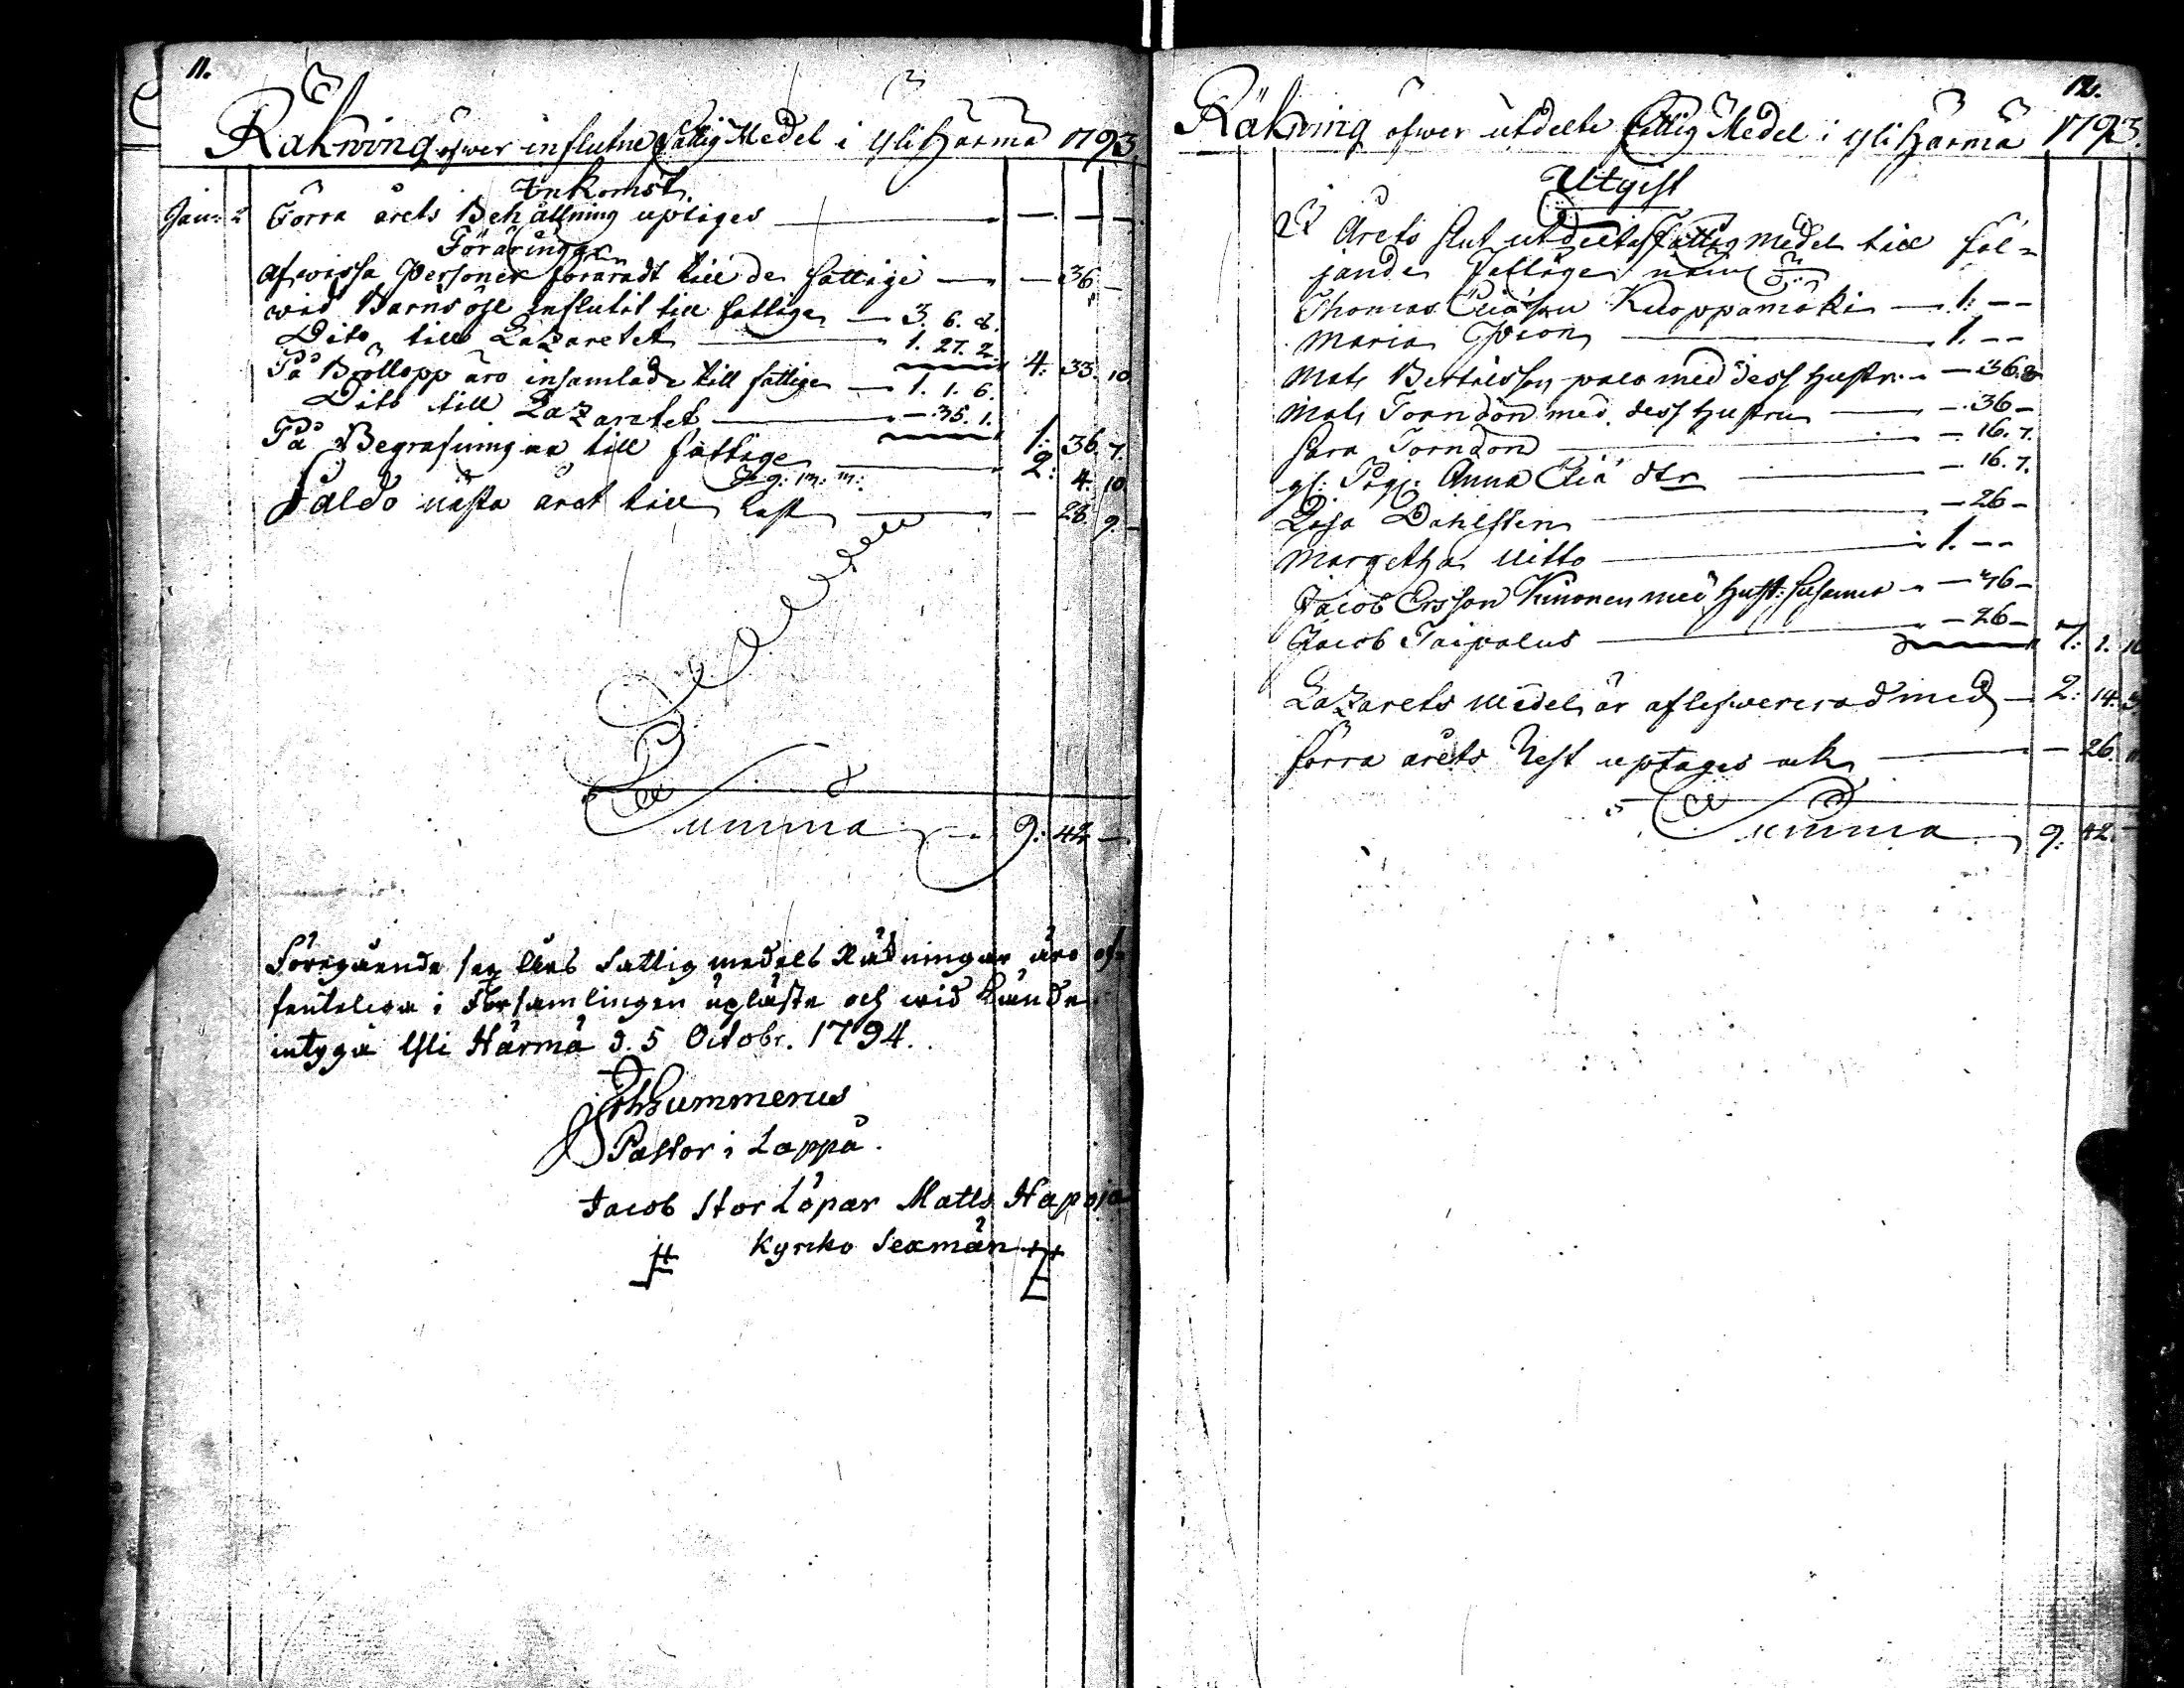 11.
Räkning öfwer influtne fattig Medel i Ylihärmä 1793
Inkomst.
Janr: Förra årets Behållning uptages — — — —
Föräringar
Af wissa Personer föräradt till de fattige — — 36 —
wid Barnsöhl influtit till fattige — 3. 6. 8.
Dito till Lazaretet — 1. 27. 2. 4. 33. 10
På Bröllopp äro insamlade till fattige — 1. 1. 6.
Dito till Lazaretet — 35. 1. 1: 36. 7.
På Begrafningar till fattige 2: 4. 10.
Saldo nästa året till last — — 28. 9.
Summa 9: 42 —
Föregående sex års fattig medels Räkningar äro of-
fenteliga i Församlingen upläste och wid kände
intyga Yli Härmä d. 5 Octobr. 1794.
Joh Hummerus
Pastor i Lappå.
Jacob Stor Löpar Matts Hapoja
Kyrcko Sexmän
12.
Räkning öfwer utdeelte fattig Medel i Ylihärmä 1793.
Utgift
Wid Årets slut utdeeltes fattig medel till föl-
jande fattige näml:
Thomas Eliasson Kuoppamäki — 1: — —
Maria — 1. — —
Mats Bertilsson palo med dess hustr. — 36. 8
Mats Torndon med dess hustru — — 36 —
Sara Torndon — — 16. 7.
gl: Pig: Anna Elia dtr — — 16. 7.
Lisa Dahlsten — — 26 —
Margetha Nitto — 1. — —
Jacob Ersson Kinonen med hust: Susanna — — 46 —
Jacob Taipalus — — 26 — 7: 1. 10
Lazarets medel är aflefwererad med — 2: 14. 3
förra årets Rest uptages och — — 26. 11
Summa 9. 42. —